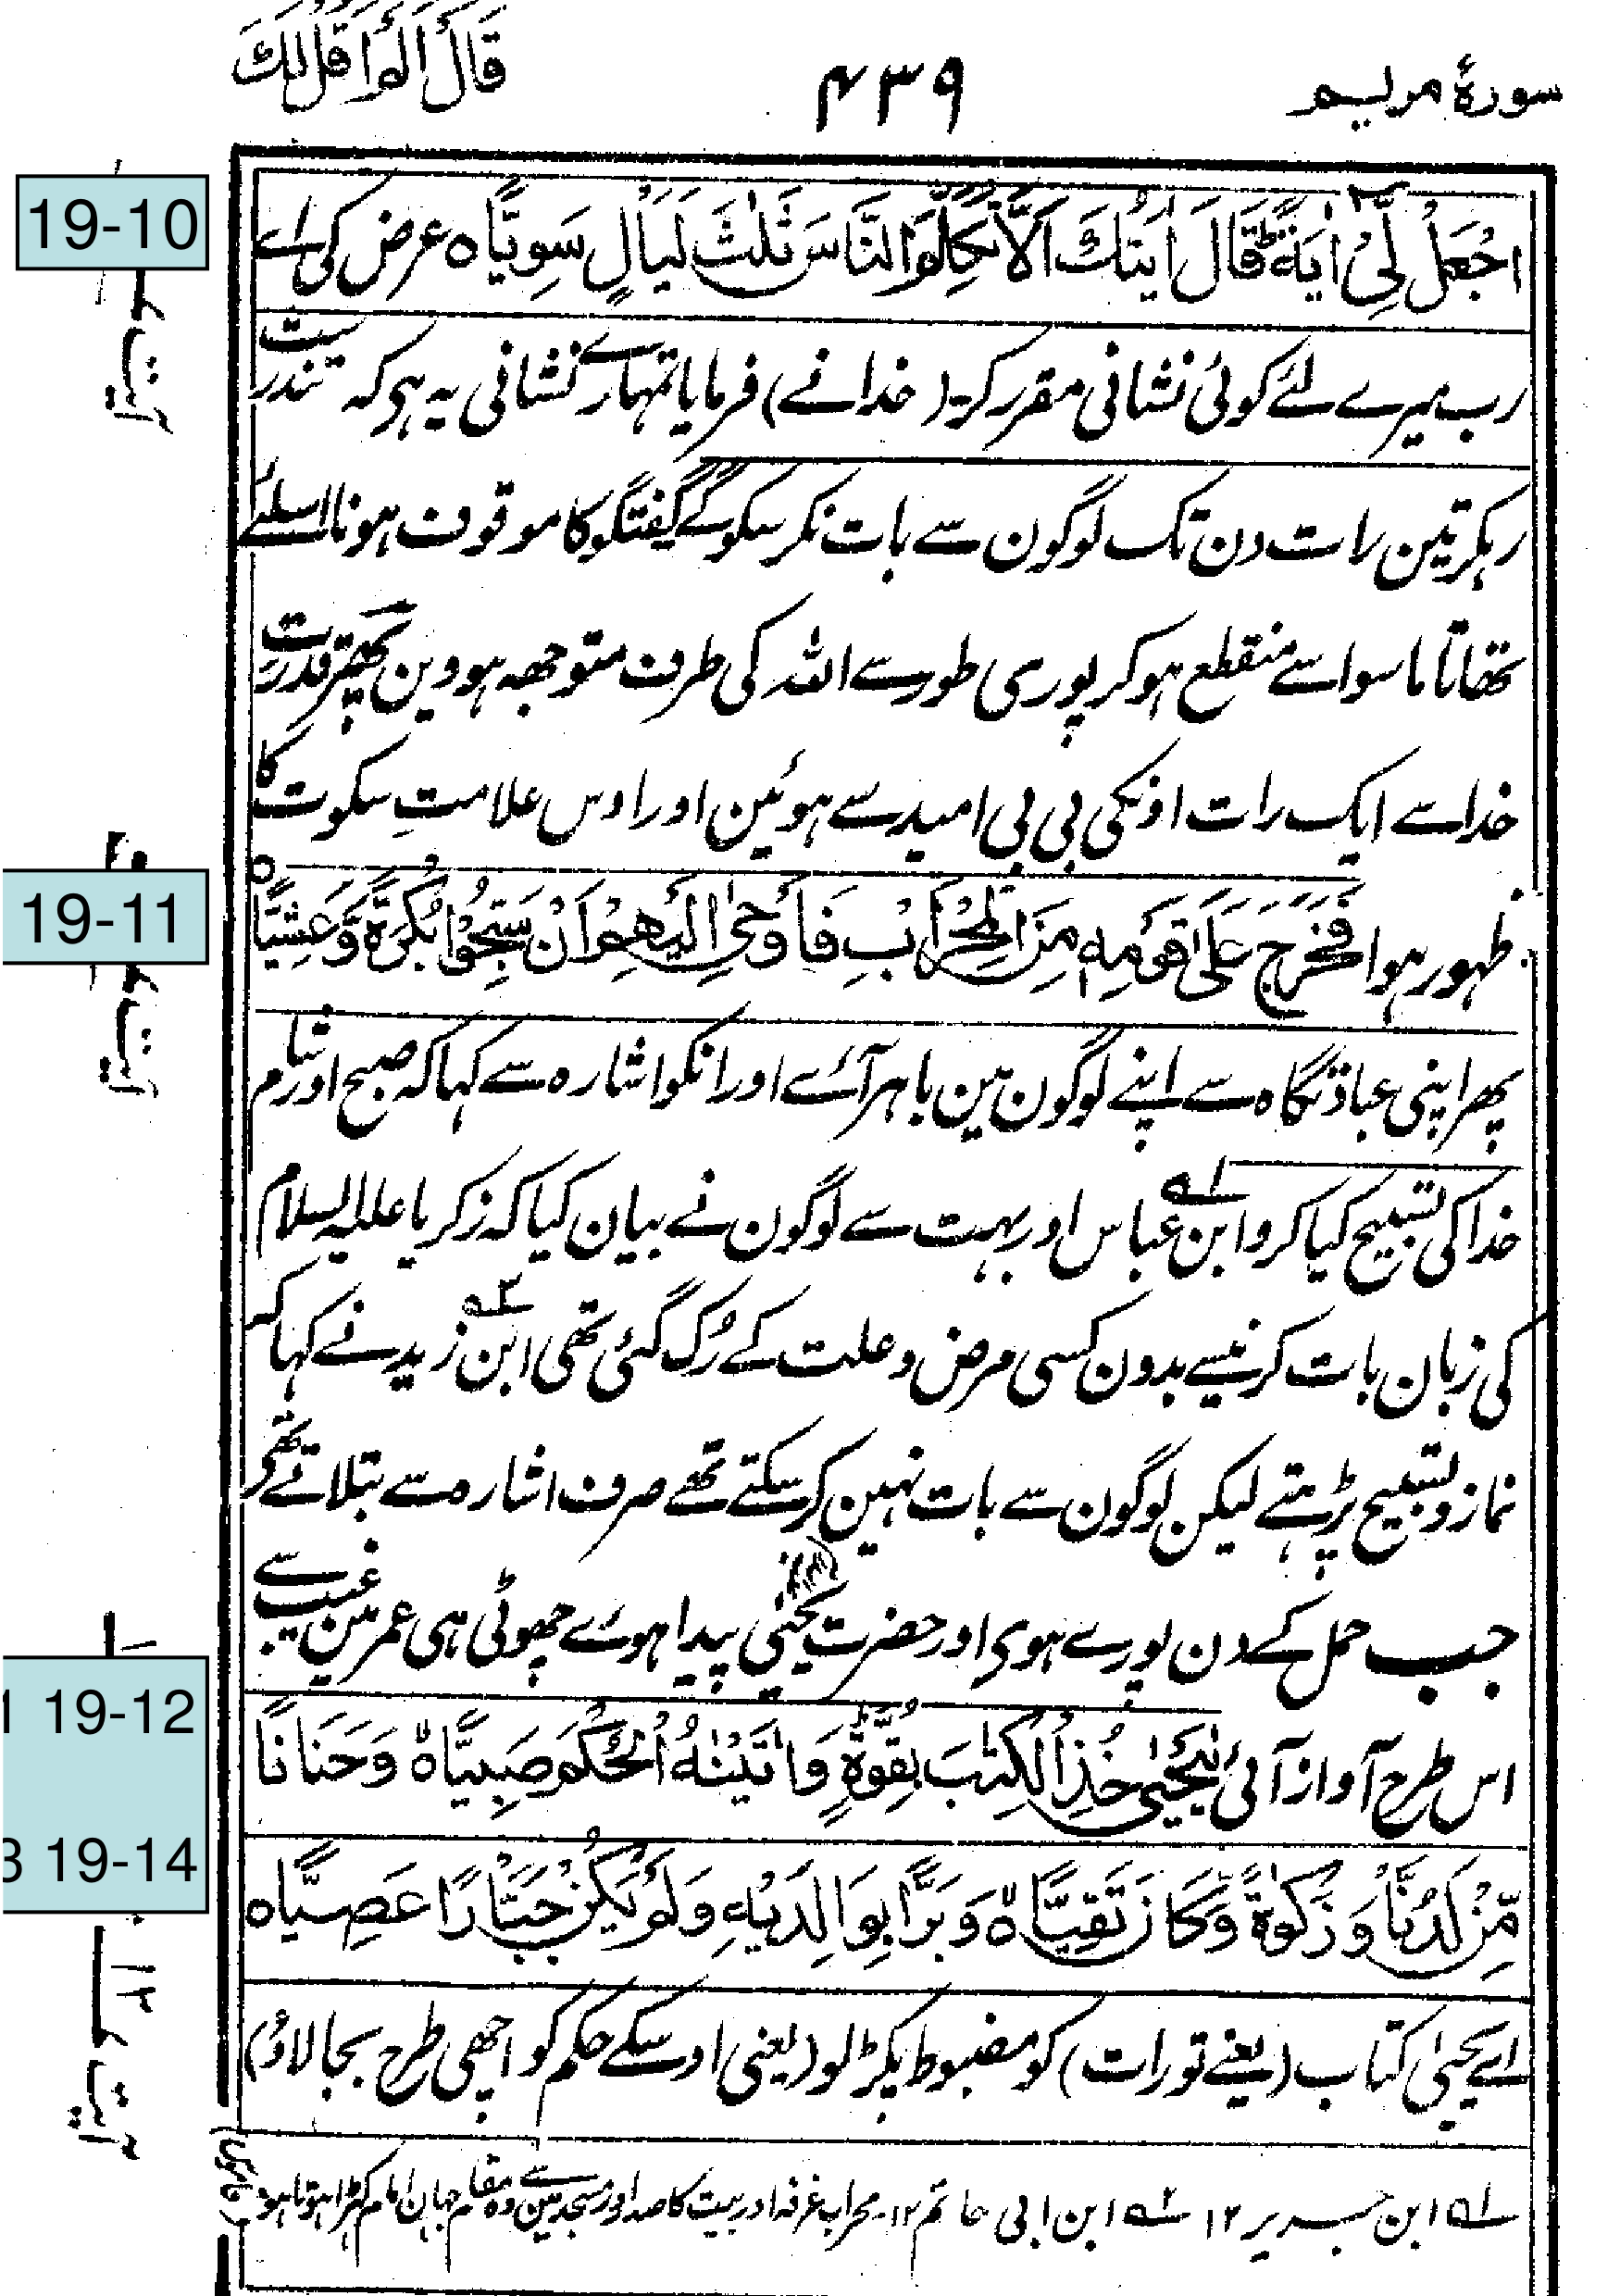 سورۂ مریم
۴۳۹
قَالَ اَلَمْ اَقُلْ لَّكَ
19-10
اجْعَلْ لِّیْ اٰیَةً ؕ قَالَ اٰیَتُكَ اَلَّا تُكَلِّمَ النَّاسَ ثَلٰثَ لَیَالٍ سَوِیًّا ہ عرض کی اے
رب میرے لئے کوئی نشانی مقرر کر یہ ( خدا نے ) فرمایا تمہارے نشانی یہ ہی کہ تندرست
رہکر تین رات دن تک لوگون سے بات نکر سکوگے گفتگو کا موقوف ہونا اسلئے
تھا تا ماسوا سے منقطع ہو کر پوری طور سے اللہ کی طرف متوجھہ ہووین پھر قدرت
خدا سے ایک رات اونکی بی بی امید سے ہوئین اور اوس علامتِ سکوت کا
19-11
ظہور ہوا فَخَرَجَ عَلٰی قَوْمِهٖ مِنَ الْمِحْرَابِ فَاَوْحٰۤی اِلَیْهِمْ اَنْ سَبِّحُوْا بُكْرَةً وَّعَشِیًّا ہ
پھر اپنی عبادتگاہ سے اپنے لوگون مین باہر آئے اور انکو اشارہ سے کہا کہ صبح اور شام
خدا کی تسبیح کیا کرو ابن عباس اور بہت سے لوگون نے بیان کیا کہ زکریا علیہ السلام
کی زبان بات کرنیسے بدون کسی مرض و علت کے رُک گئی تھی ابن زید نے کہا کہ
نماز و تسبیح پڑہتے لیکن لوگون سے بات نہین کر سکتے تھے صرف اشارہ سے بتلاتے تھی
جب حمل کے دن پورے ہوی اور حضرت یحیٰی پیدا ہوے چھوٹی ہی عمر مین غیب سے
19-12
اس طرح آواز آئی یٰیَحْیٰی خُذِ الْكِتٰبَ بِقُوَّةٍ ؕ وَاٰتَیْنٰهُ الْحُكْمَ صَبِیًّا ہ وَحَنَانًا
19-14
مِّنْ لَّدُنَّا وَزَكٰوةً ؕ وَّكَانَ تَقِیًّا ہ وَبَرًّۢا بِوَالِدَیْهِ وَلَمْ یَكُنْ جَبَّارًا عَصِیًّا ہ
اے یحیٰی کتاب ( یعنے تورات ) کو مضبوط پکڑ لو ( یعنی اوسکے حکم کو اچھی طرح بجا لاؤ )
۱ہ ابن جریر ۱۲ ۲ہ ابن ابی حاتم ۱۲۔ محراب غرفہ اور بیت کا صدر اور مسجد مین سے وہ مقام جہان امام کھڑا ہوتا ہو